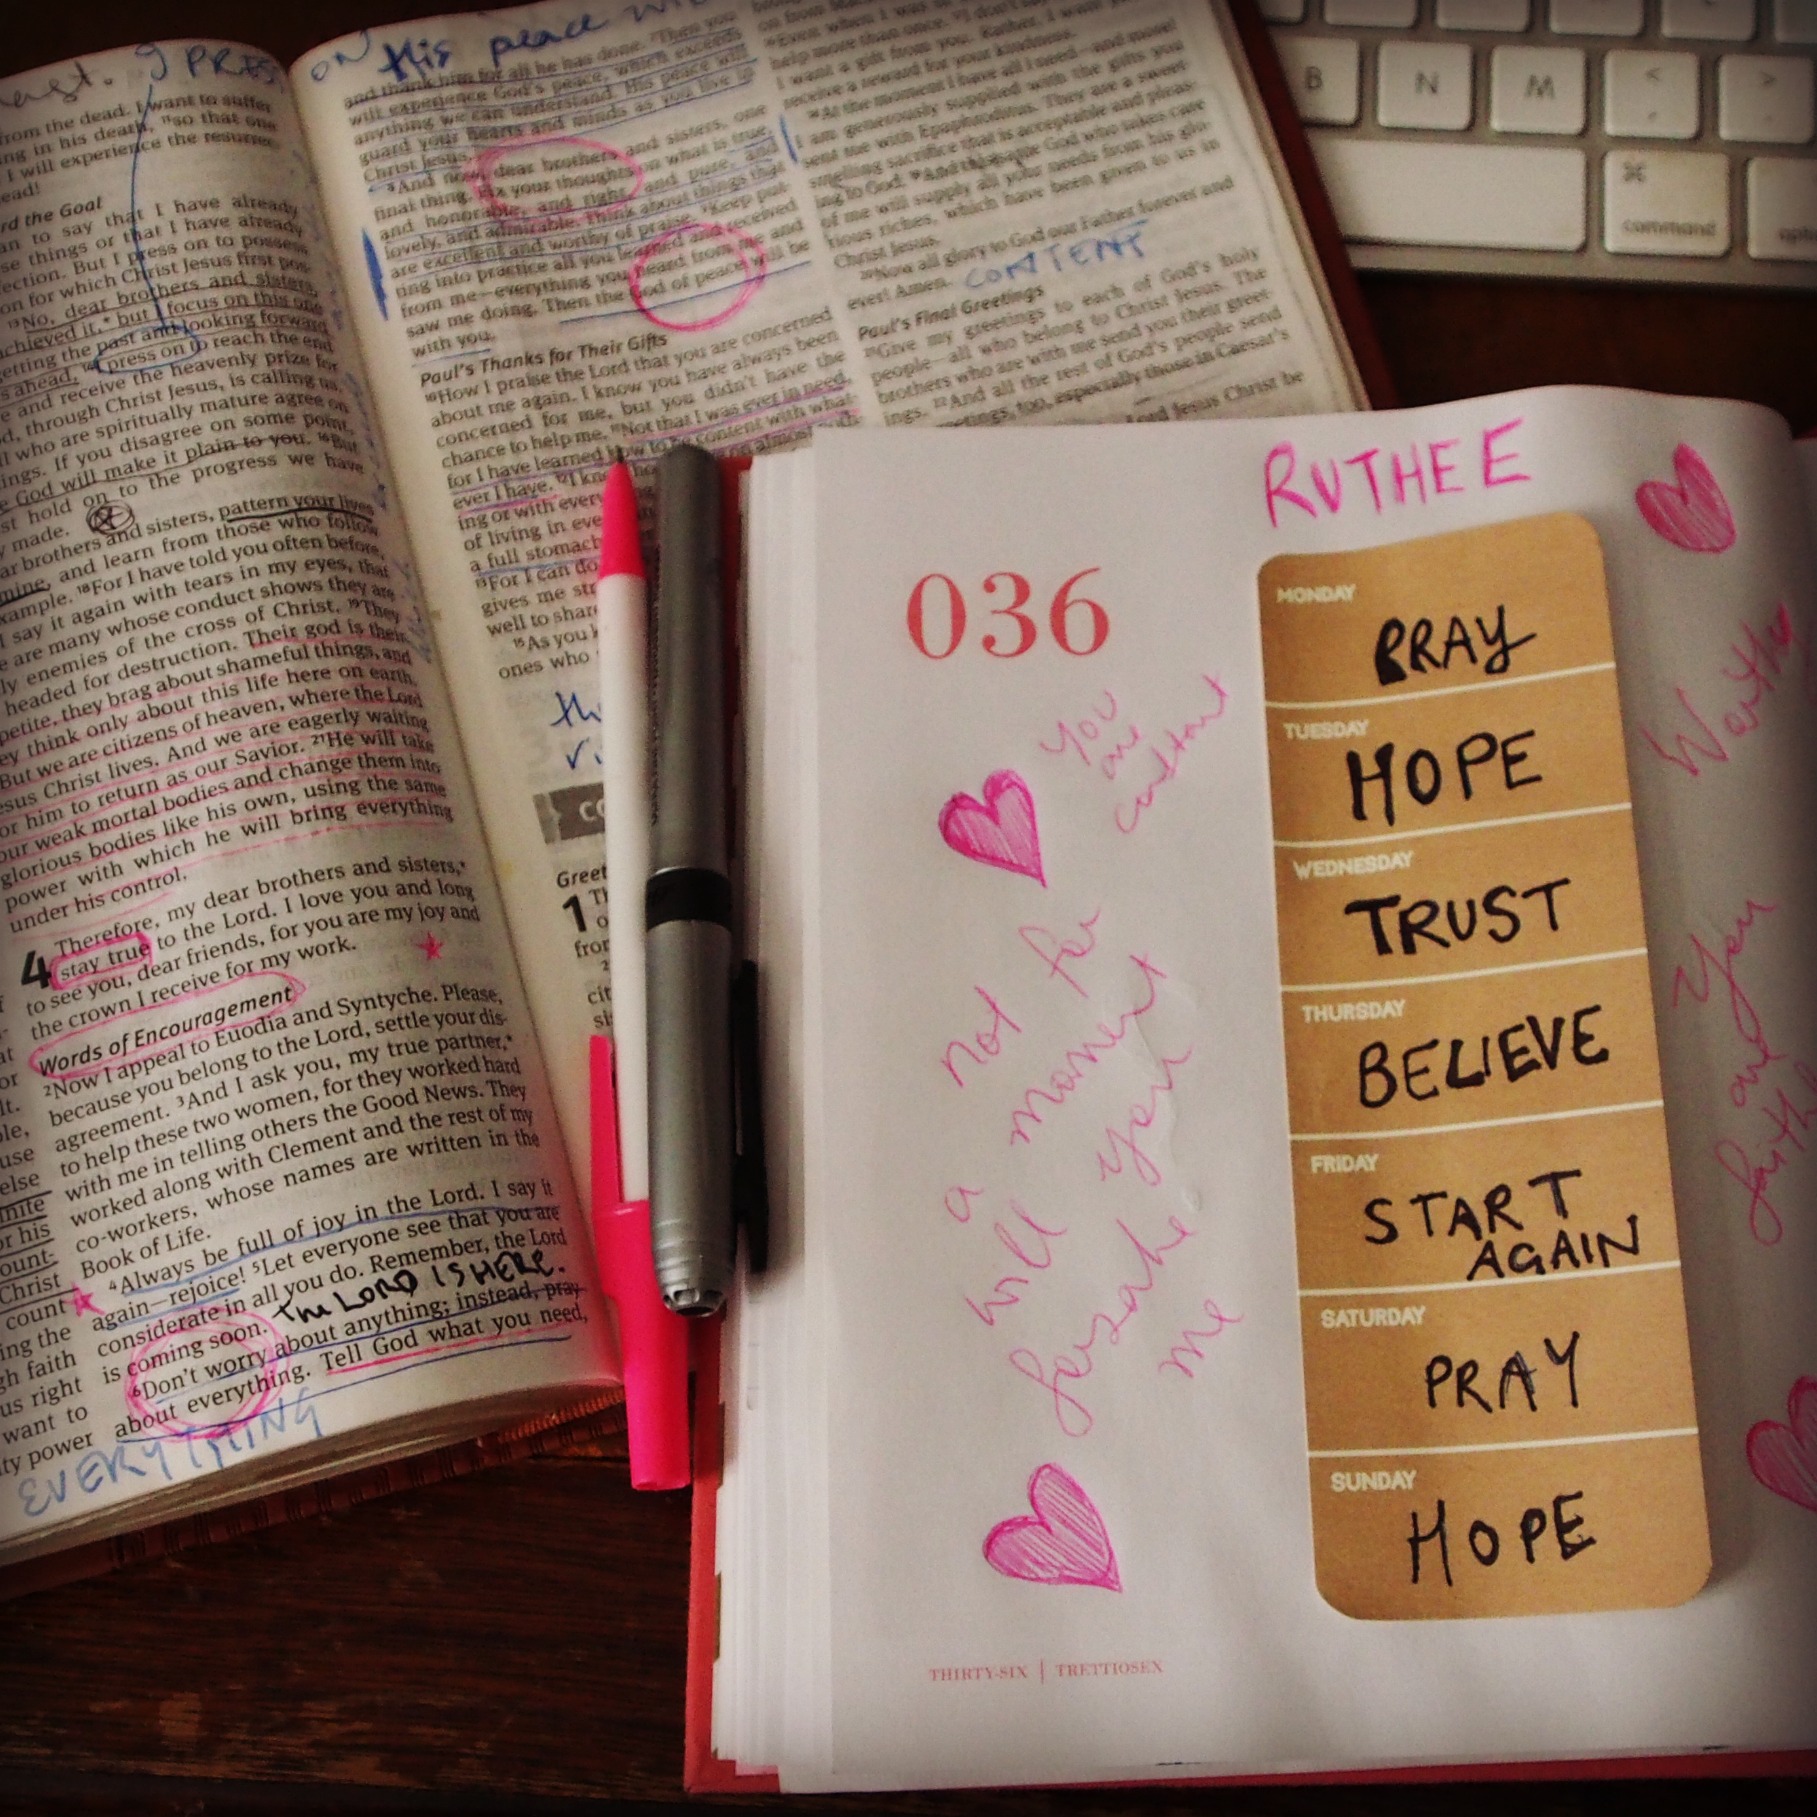 I PRESS ON
His peace
from the dead. I want to suffer
ing in his death, ¹¹so that one
I will experience the resurrec-
ead!
rd the Goal
an to say that I have already
se things or that I have already
ection. But I press on to possess
on for which Christ Jesus first pos-
¹³No, dear brothers and sisters,
achieved it,* but I focus on this one
getting the past and looking forward
s ahead, ¹⁴I press on to reach the end
e and receive the heavenly prize for
d, through Christ Jesus, is calling us.
ll who are spiritually mature agree on
ings. If you disagree on some point,
e God will make it plain to you. ¹⁶But
st hold on to the progress we have
y made.
ar brothers and sisters, pattern your lives
mine, and learn from those who follow
xample. ¹⁸For I have told you often before,
I say it again with tears in my eyes, that
e are many whose conduct shows they are
ly enemies of the cross of Christ. ¹⁹They
headed for destruction. Their god is their
petite, they brag about shameful things, and
ey think only about this life here on earth.
But we are citizens of heaven, where the Lord
esus Christ lives. And we are eagerly waiting
or him to return as our Savior. ²¹He will take
our weak mortal bodies and change them into
glorious bodies like his own, using the same
power with which he will bring everything
under his control.
4 Therefore, my dear brothers and sisters,*
stay true to the Lord. I love you and long
to see you, dear friends, for you are my joy and
the crown I receive for my work.
Words of Encouragement
²Now I appeal to Euodia and Syntyche. Please,
because you belong to the Lord, settle your dis-
agreement. ³And I ask you, my true partner,*
to help these two women, for they worked hard
with me in telling others the Good News. They
worked along with Clement and the rest of my
co-workers, whose names are written in the
Book of Life.
⁴Always be full of joy in the Lord. I say it
again—rejoice! ⁵Let everyone see that you are
considerate in all you do. Remember, the Lord
is coming soon. THE LORD IS HERE.
⁶Don't worry about anything; instead, pray
about everything. Tell God what you need,
EVERYTHING
and thank him for all he has done. ⁷Then you
will experience God's peace, which exceeds
anything we can understand. His peace will
guard your hearts and minds as you live in
Christ Jesus.
⁸And now, dear brothers and sisters, one
final thing. Fix your thoughts on what is true,
and honorable, and right, and pure, and
lovely, and admirable. Think about things that
are excellent and worthy of praise. ⁹Keep put-
ting into practice all you learned and received
from me—everything you heard from me and
saw me doing. Then the God of peace will be
with you.
Paul's Thanks for Their Gifts
¹⁰How I praise the Lord that you are concerned
about me again. I know you have always been
concerned for me, but you didn't have the
chance to help me. ¹¹Not that I was ever in need,
for I have learned how to be content with what-
ever I have. ¹²I know
ing or with every
of living in eve
a full stomach
¹³For I can do
gives me str
well to shar
¹⁵As you k
ones who
Greet
1 Th
from
cit
help more than once. ¹⁷I don't say
I want a gift from you. Rather, I want
receive a reward for your kindness.
¹⁸At the moment I have all I need—and more!
I am generously supplied with the gifts you
sent me with Epaphroditus. They are a sweet-
smelling sacrifice that is acceptable and pleas-
ing to God. ¹⁹And this same God who takes care
of me will supply all your needs from his glo-
rious riches, which have been given to us in
Christ Jesus.
²⁰Now all glory to God our Father forever and
ever! Amen. CONTENT
Paul's Final Greetings
²¹Give my greetings to each of God's holy
people—all who belong to Christ Jesus. The
brothers who are with me send you their greet-
ings. ²²And all the rest of God's people send
greetings, too, especially those in Caesar's
Lord Jesus Christ be
B N M < , > .
⌘
command
RUTHEE
036
MONDAY
PRAY
TUESDAY
HOPE
WEDNESDAY
TRUST
THURSDAY
BELIEVE
FRIDAY
START
AGAIN
SATURDAY
PRAY
SUNDAY
HOPE
You
are
constant
not for
a moment
will you
forsake
me
Worthy
You
are
faithful
THIRTY-SIX | TRETTIOSEX